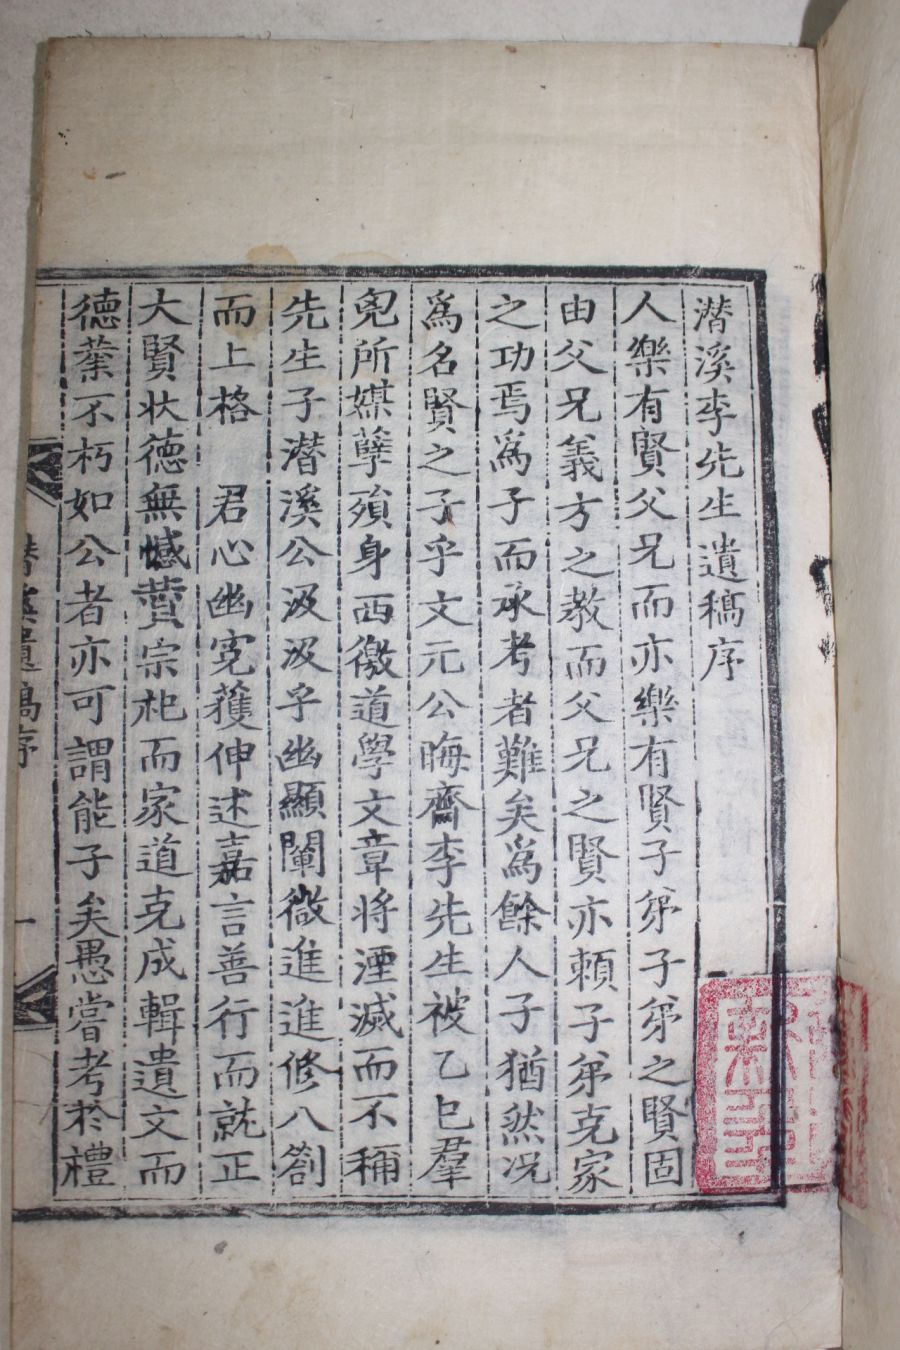 潜溪李先生遺稿序
人樂有賢父兄而亦樂有賢子弟子弟之賢固
由父兄義方之教而父兄之賢亦頼子弟克家
之功焉爲子而承考者難矣爲餘人子猶然况
爲名賢之子乎文元公晦齋李先生被乙巳羣
兇所媒孽殞身西徼道學文章将湮滅而不稱
先生子潜溪公汲汲乎幽顯闡微進進修八劄
而上格 君心幽寃獲伸述嘉言善行而就正
大賢状德無憾薲宗祀而家道克成輯遺文而
德業不朽如公者亦可謂能子矣愚嘗考於禮
潜溪遺稿序
一